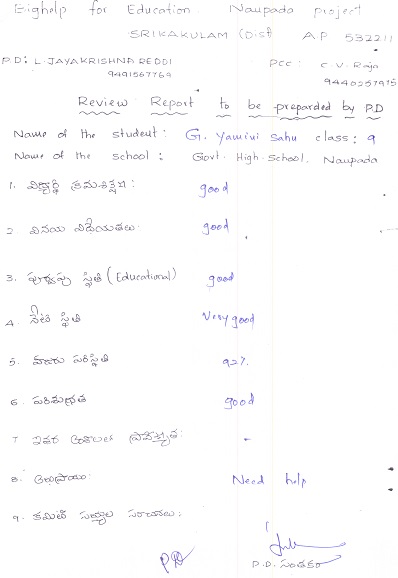 Eighelp for Education Naupada project
SRIKAKULAM (Dist) A.P 532211
P.D: L. JAYAKRISHNA REDDI PCC: C.V. Raja
9491567769 9440257915
Review Report to be preparded by P.D
Name of the student: G. Yamini Sahu class: 9
Name of the school: Govt. High School, Naupada
1. విద్యార్థి క్రమశిక్షణ: good
2. వినయ విధేయతలు: good
3. పూర్వపు స్థితి (Educational) good
4. నేటి స్థితి Very good
5. హాజరు పరిస్థితి 92%
6. పరిశుభ్రత good
7. ఇతర అంశాలలో ప్రావీణ్యత: -
8. అభిప్రాయం: Need help
9. కమిటీ సభ్యుల సూచనలు:
P.D
P.D. సంతకం